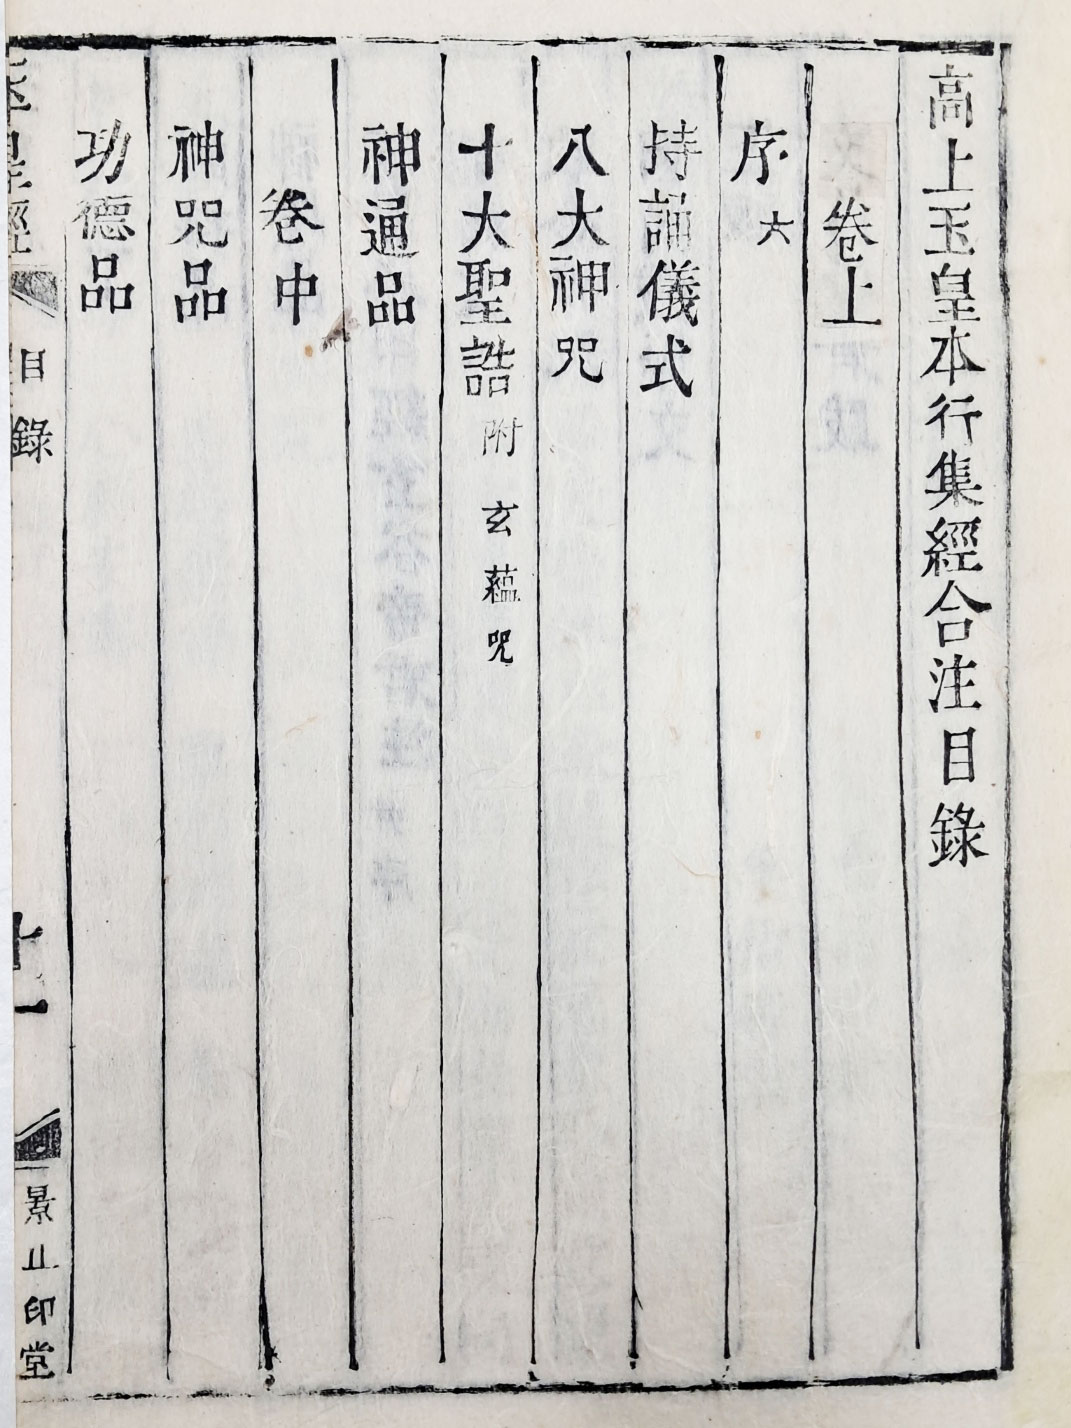 高上玉皇本行集經合注目錄
卷上
序六
持誦儀式
八大神咒
十大聖誥附玄蘊咒
神通品
卷中
神咒品
功德品
玉皇經 目錄 十一 景山印堂